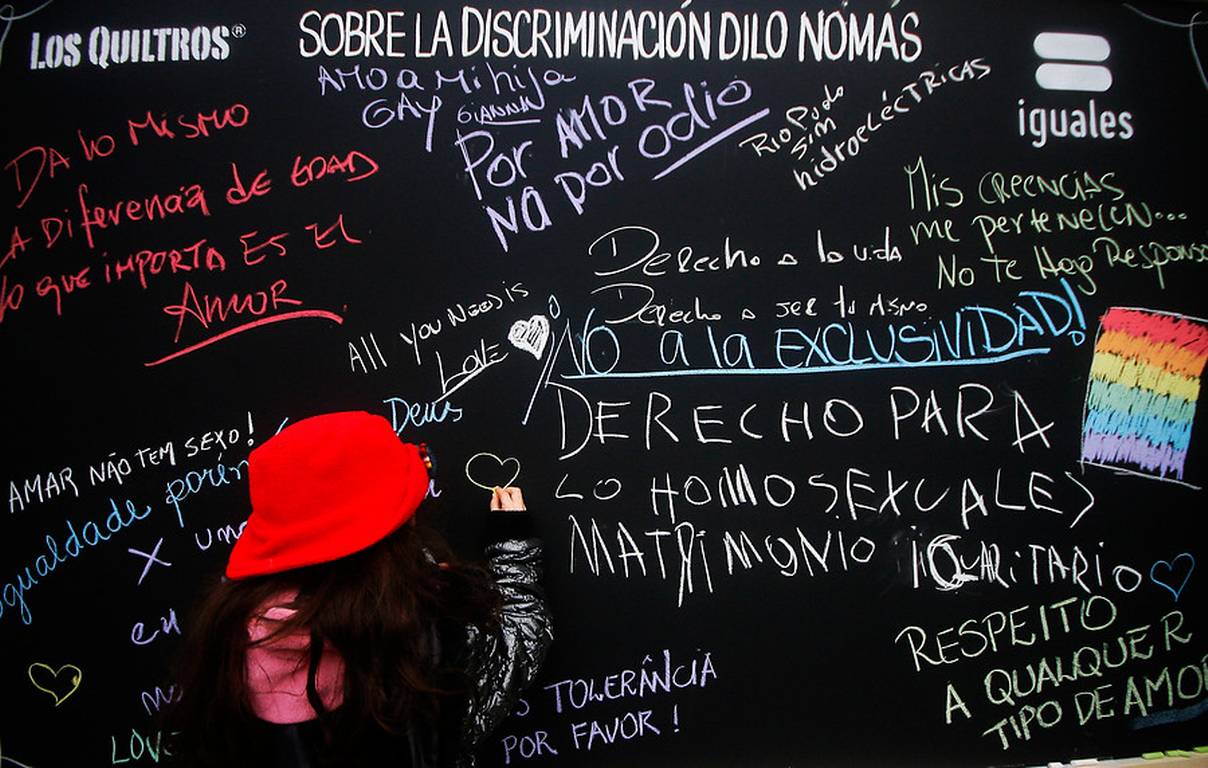 LOS QUILTROS®
SOBRE LA DISCRIMINACIÓN DILO NOMÁS
iguales
AMO A Mi hija
GAY GIANNINA
Por AMOR
NA por odio
Rio Puelo
sim
hidroeléctricas
DA lo Mismo
LA Diferencia de EDAD
lo que importa es el
Amor
Mis creencias
me pertenecen...
No te Hago Responso
Derecho a la vida
Derecho a ser tu mismo
All you need is
Love
NO a la EXCLUSIVIDAD!
DERECHO PARA
LO HOMOSEXUALES
MATRIMONIO IGUALITARIO
AMAR NÃO TEM SEXO!
igualdade porén
Deus
X un
en
LOVE
TOLERÂNCIA
POR FAVOR!
RESPEITO
A QUALQUER
TIPO DE AMOR